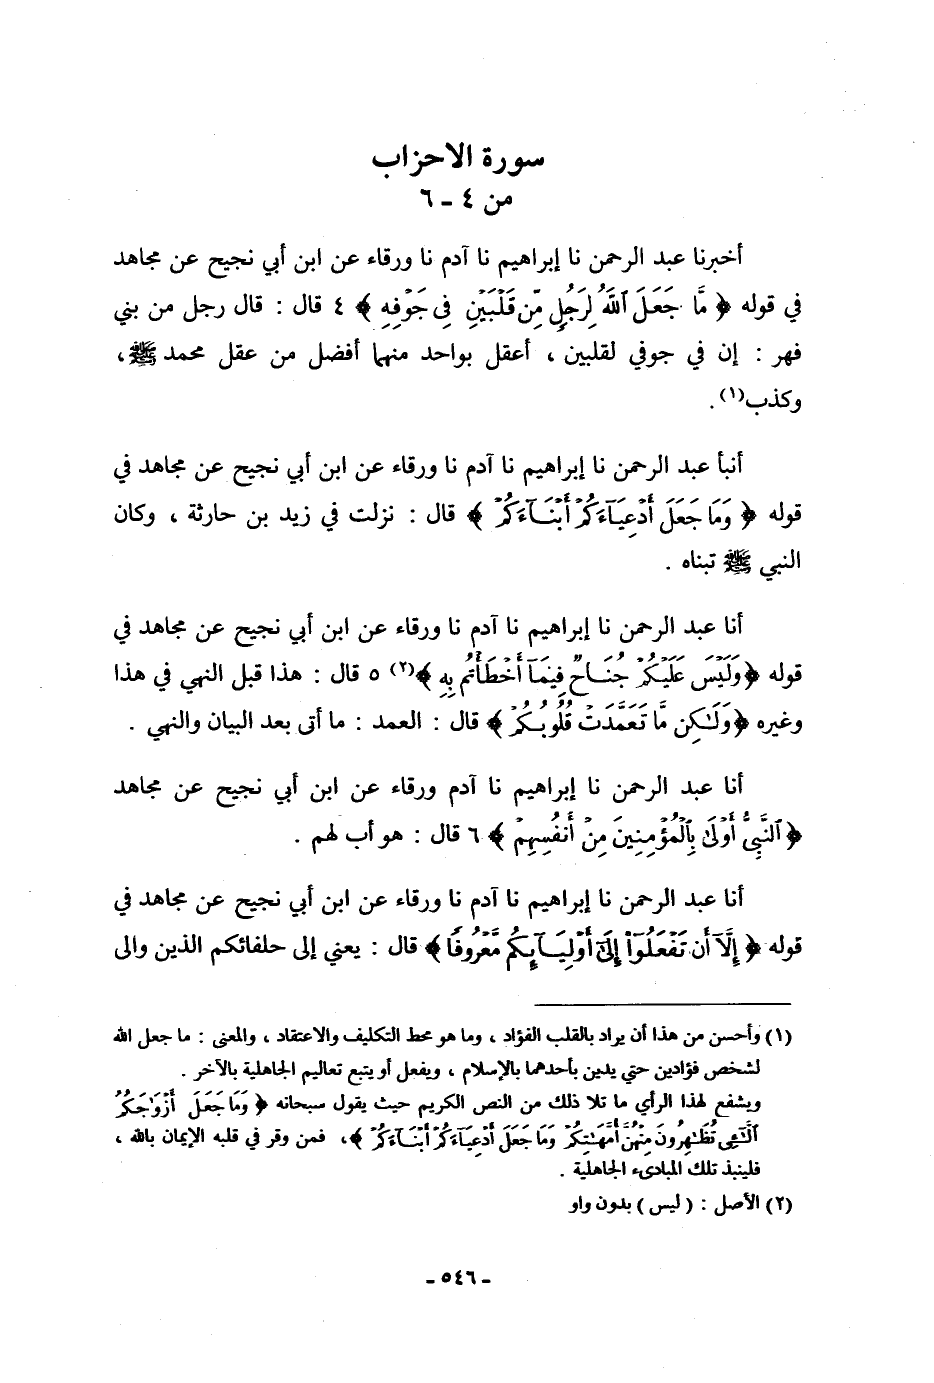 سورة الاحزاب
من ٤ - ٦
أخبرنا عبد الرحمن نا إبراهيم نا آدم نا ورقاء عن ابن أبي نجيح عن مجاهد
في قوله ﴿ مَّا جَعَلَ ٱللَّهُ لِرَجُلٍ مِّن قَلْبَيْنِ فِى جَوْفِهِ ﴾ ٤ قال : قال رجل من بني
فهر : إن في جوفي لقلبين ، أعقل بواحد منهما أفضل من عقل محمد ﷺ ،
وكذب(١) .
أنبأ عبد الرحمن نا إبراهيم نا آدم نا ورقاء عن ابن أبي نجيح عن مجاهد في
قوله ﴿ وَمَا جَعَلَ أَدْعِيَآءَكُمْ أَبْنَآءَكُمْ ﴾ قال : نزلت في زيد بن حارثة ، وكان
النبي ﷺ تبناه .
أنا عبد الرحمن نا إبراهيم نا آدم نا ورقاء عن ابن أبي نجيح عن مجاهد في
قوله ﴿ وَلَيْسَ عَلَيْكُمْ جُنَاحٌ فِيمَآ أَخْطَأْتُم بِهِ ﴾(٢) ٥ قال : هذا قبل النهي في هذا
وغيره ﴿ وَلَٰكِن مَّا تَعَمَّدَتْ قُلُوبُكُمْ ﴾ قال : العمد : ما أتى بعد البيان والنهي .
أنا عبد الرحمن نا إبراهيم نا آدم ورقاء عن ابن أبي نجيح عن مجاهد
﴿ ٱلنَّبِىُّ أَوْلَىٰ بِٱلْمُؤْمِنِينَ مِنْ أَنفُسِهِمْ ﴾ ٦ قال : هو أب لهم .
أنا عبد الرحمن نا إبراهيم نا آدم نا ورقاء عن ابن أبي نجيح عن مجاهد في
قوله ﴿ إِلَّآ أَن تَفْعَلُوٓا۟ إِلَىٰٓ أَوْلِيَآئِكُم مَّعْرُوفًا ﴾ قال : يعني إلى حلفائكم الذين والى
(١) وأحسن من هذا أن يراد بالقلب الفؤاد ، وما هو محط التكليف والاعتقاد ، والمعنى : ما جعل الله
لشخص فؤادين حتي يدين بأحدهما بالإسلام ، ويفعل أو يتبع تعاليم الجاهلية بالآخر .
ويشفع لهذا الرأي ما تلا ذلك من النص الكريم حيث يقول سبحانه ﴿ وَمَا جَعَلَ أَزْوَٰجَكُمُ
ٱلَّٰٓـِٔى تُظَٰهِرُونَ مِنْهُنَّ أُمَّهَٰتِكُمْ وَمَا جَعَلَ أَدْعِيَآءَكُمْ أَبْنَآءَكُمْ ﴾، فمن وقر في قلبه الإيمان بالله ،
فلينبذ تلك المبادىء الجاهلية .
(٢) الأصل : ( ليس ) بدون واو
- ٥٤٦ -